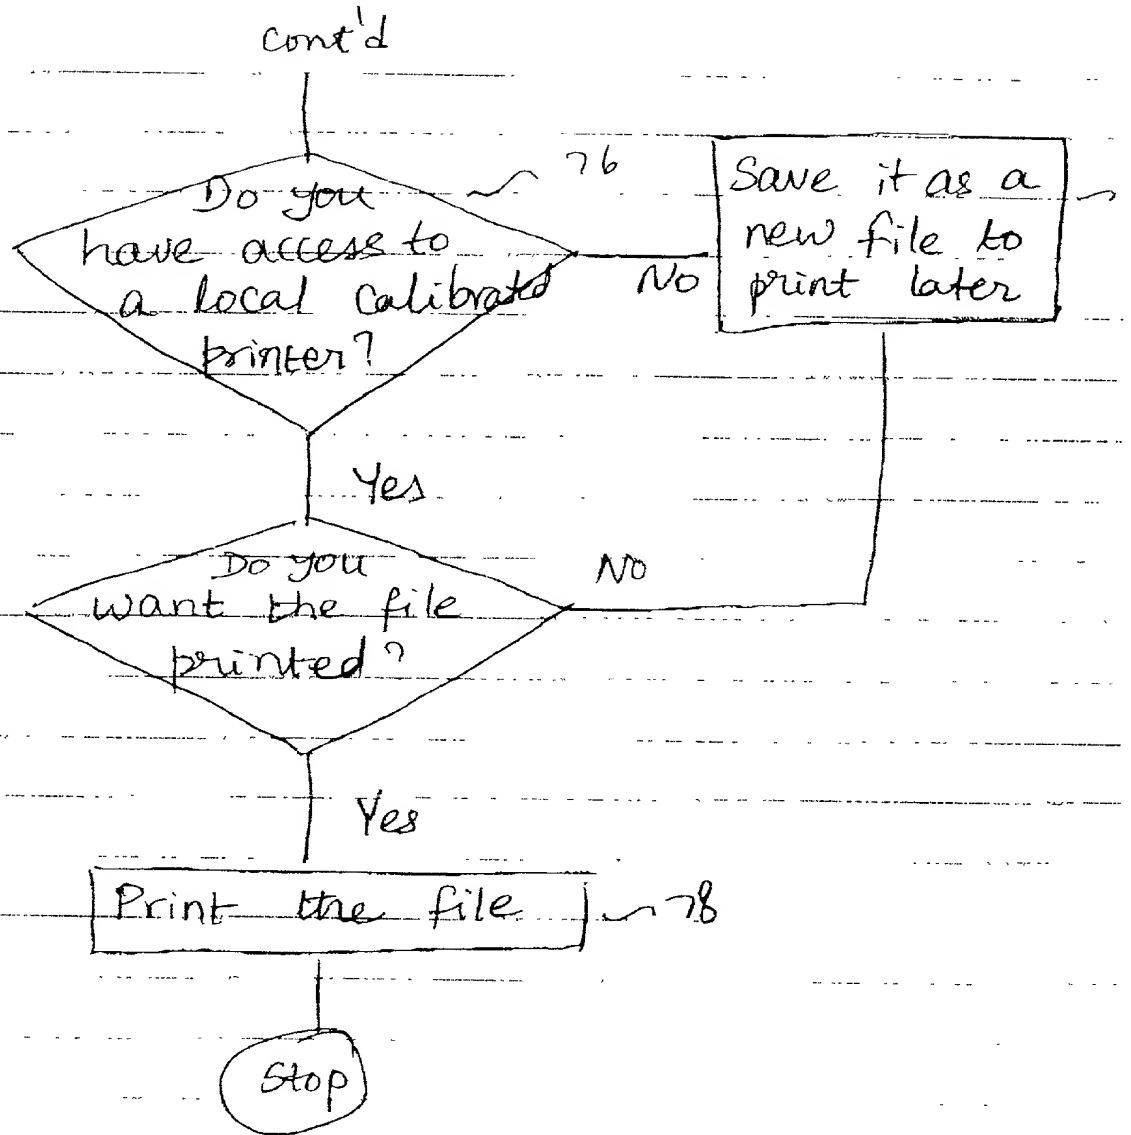 cont'd
Do you
have access to
a local calibrated
printer?
76
No
Save it as a
new file to
print later
Yes
Do you
want the file
printed?
No
Yes
Print the file
78
Stop